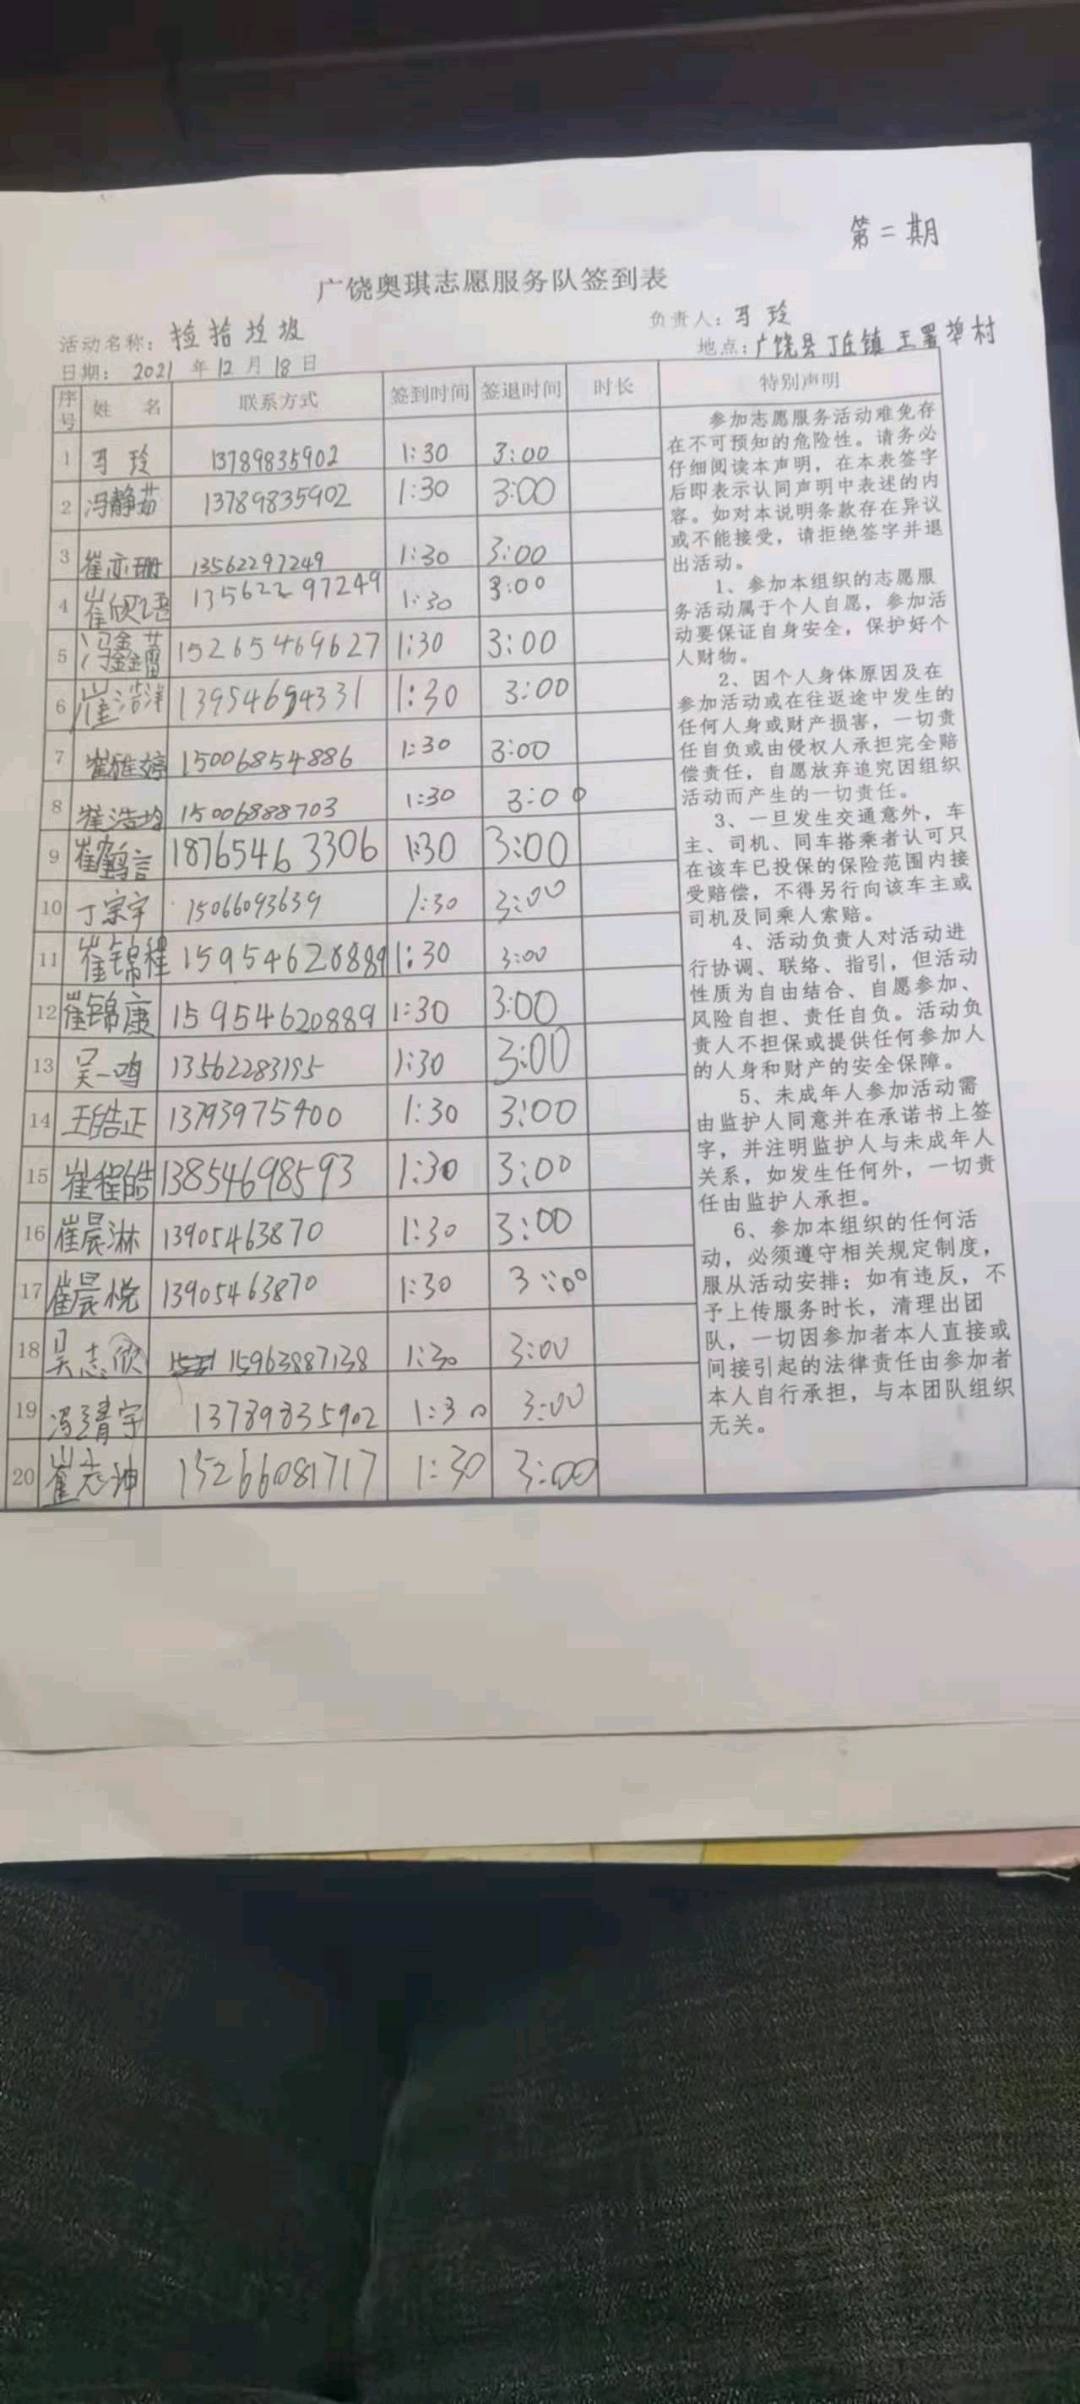 第二期
广饶奥琪志愿服务队签到表
活动名称：捡拾垃圾 负责人：马玲
日期：2021年12月18日 地点：广饶县丁庄镇王署埠村
序号 姓名 联系方式 签到时间 签退时间 时长 特别声明
1 马玲 13789835902 1:30 3:00
2 冯静茹 13789835902 1:30 3:00
3 崔亦珊 13562297249 1:30 3:00
4 崔欣语 13562297249 1:30 3:00
5 冯金蕾 15265469627 1:30 3:00
6 崔浩洋 1:30 3:00
7 崔雅婷 15006854886 1:30 3:00
8 崔浩均 15006888703 1:30 3:00
9 崔鹤言 18765463306 1:30 3:00
10 丁宗宇 15066093639 1:30 3:00
11 崔锦程 15954620889 1:30 3:00
12 崔锦康 15954620889 1:30 3:00
13 吴一鸣 13562283195 1:30 3:00
14 王皓正 13793975400 1:30 3:00
15 崔程皓 13854698593 1:30 3:00
16 崔晨淋 13905463870 1:30 3:00
17 崔晨悦 13905463870 1:30 3:00
18 吴志欣 15963887138 1:30 3:00
19 冯靖宇 13789835902 1:30 3:00
20 崔志坤 15266081717 1:30 3:00
参加志愿服务活动难免存
在不可预知的危险性。请务必
仔细阅读本声明，在本表签字
后即表示认同声明中表述的内
容。如对本说明条款存在异议
或不能接受，请拒绝签字并退
出活动。
1、参加本组织的志愿服
务活动属于个人自愿，参加活
动要保证自身安全，保护好个
人财物。
2、因个人身体原因及在
参加活动或在往返途中发生的
任何人身或财产损害，一切责
任自负或由侵权人承担完全赔
偿责任，自愿放弃追究因组织
活动而产生的一切责任。
3、一旦发生交通意外，车
主、司机、同车搭乘者认可只
在该车已投保的保险范围内接
受赔偿，不得另行向该车主或
司机及同乘人索赔。
4、活动负责人对活动进
行协调、联络、指引，但活动
性质为自由结合、自愿参加、
风险自担、责任自负。活动负
责人不担保或提供任何参加人
的人身和财产的安全保障。
5、未成年人参加活动需
由监护人同意并在承诺书上签
字，并注明监护人与未成年人
关系，如发生任何外，一切责
任由监护人承担。
6、参加本组织的任何活
动，必须遵守相关规定制度，
服从活动安排；如有违反，不
予上传服务时长，清理出团
队，一切因参加者本人直接或
间接引起的法律责任由参加者
本人自行承担，与本团队组织
无关。